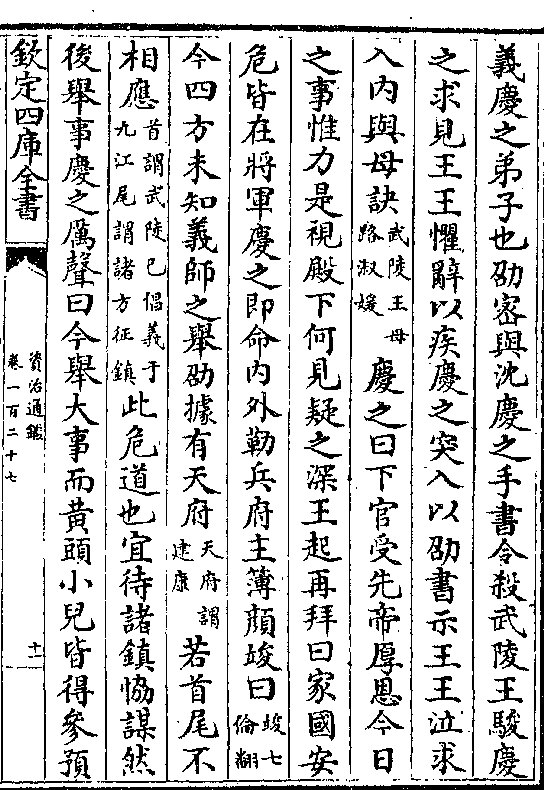 義慶之弟子也劭密與沈慶之手書令殺武陵王駿慶
之求見王王懼辭以疾慶之突入以劭書示王王泣求
入內與母訣武陵王母路淑媛慶之曰下官受先帝厚恩今日
之事惟力是視殿下何見疑之深王起再拜曰家國安
危皆在將軍慶之即命內外勒兵府主簿顔竣曰竣七倫翻
今四方未知義師之舉劭據有天府天府謂建康若首尾不
相應首謂武陵已倡義于九江尾謂諸方征鎮此危道也宜待諸鎮恊謀然
後舉事慶之厲聲曰今舉大事而黄頭小兒皆得參預
欽定四庫全書
資治通鑑
卷一百二十七
十一